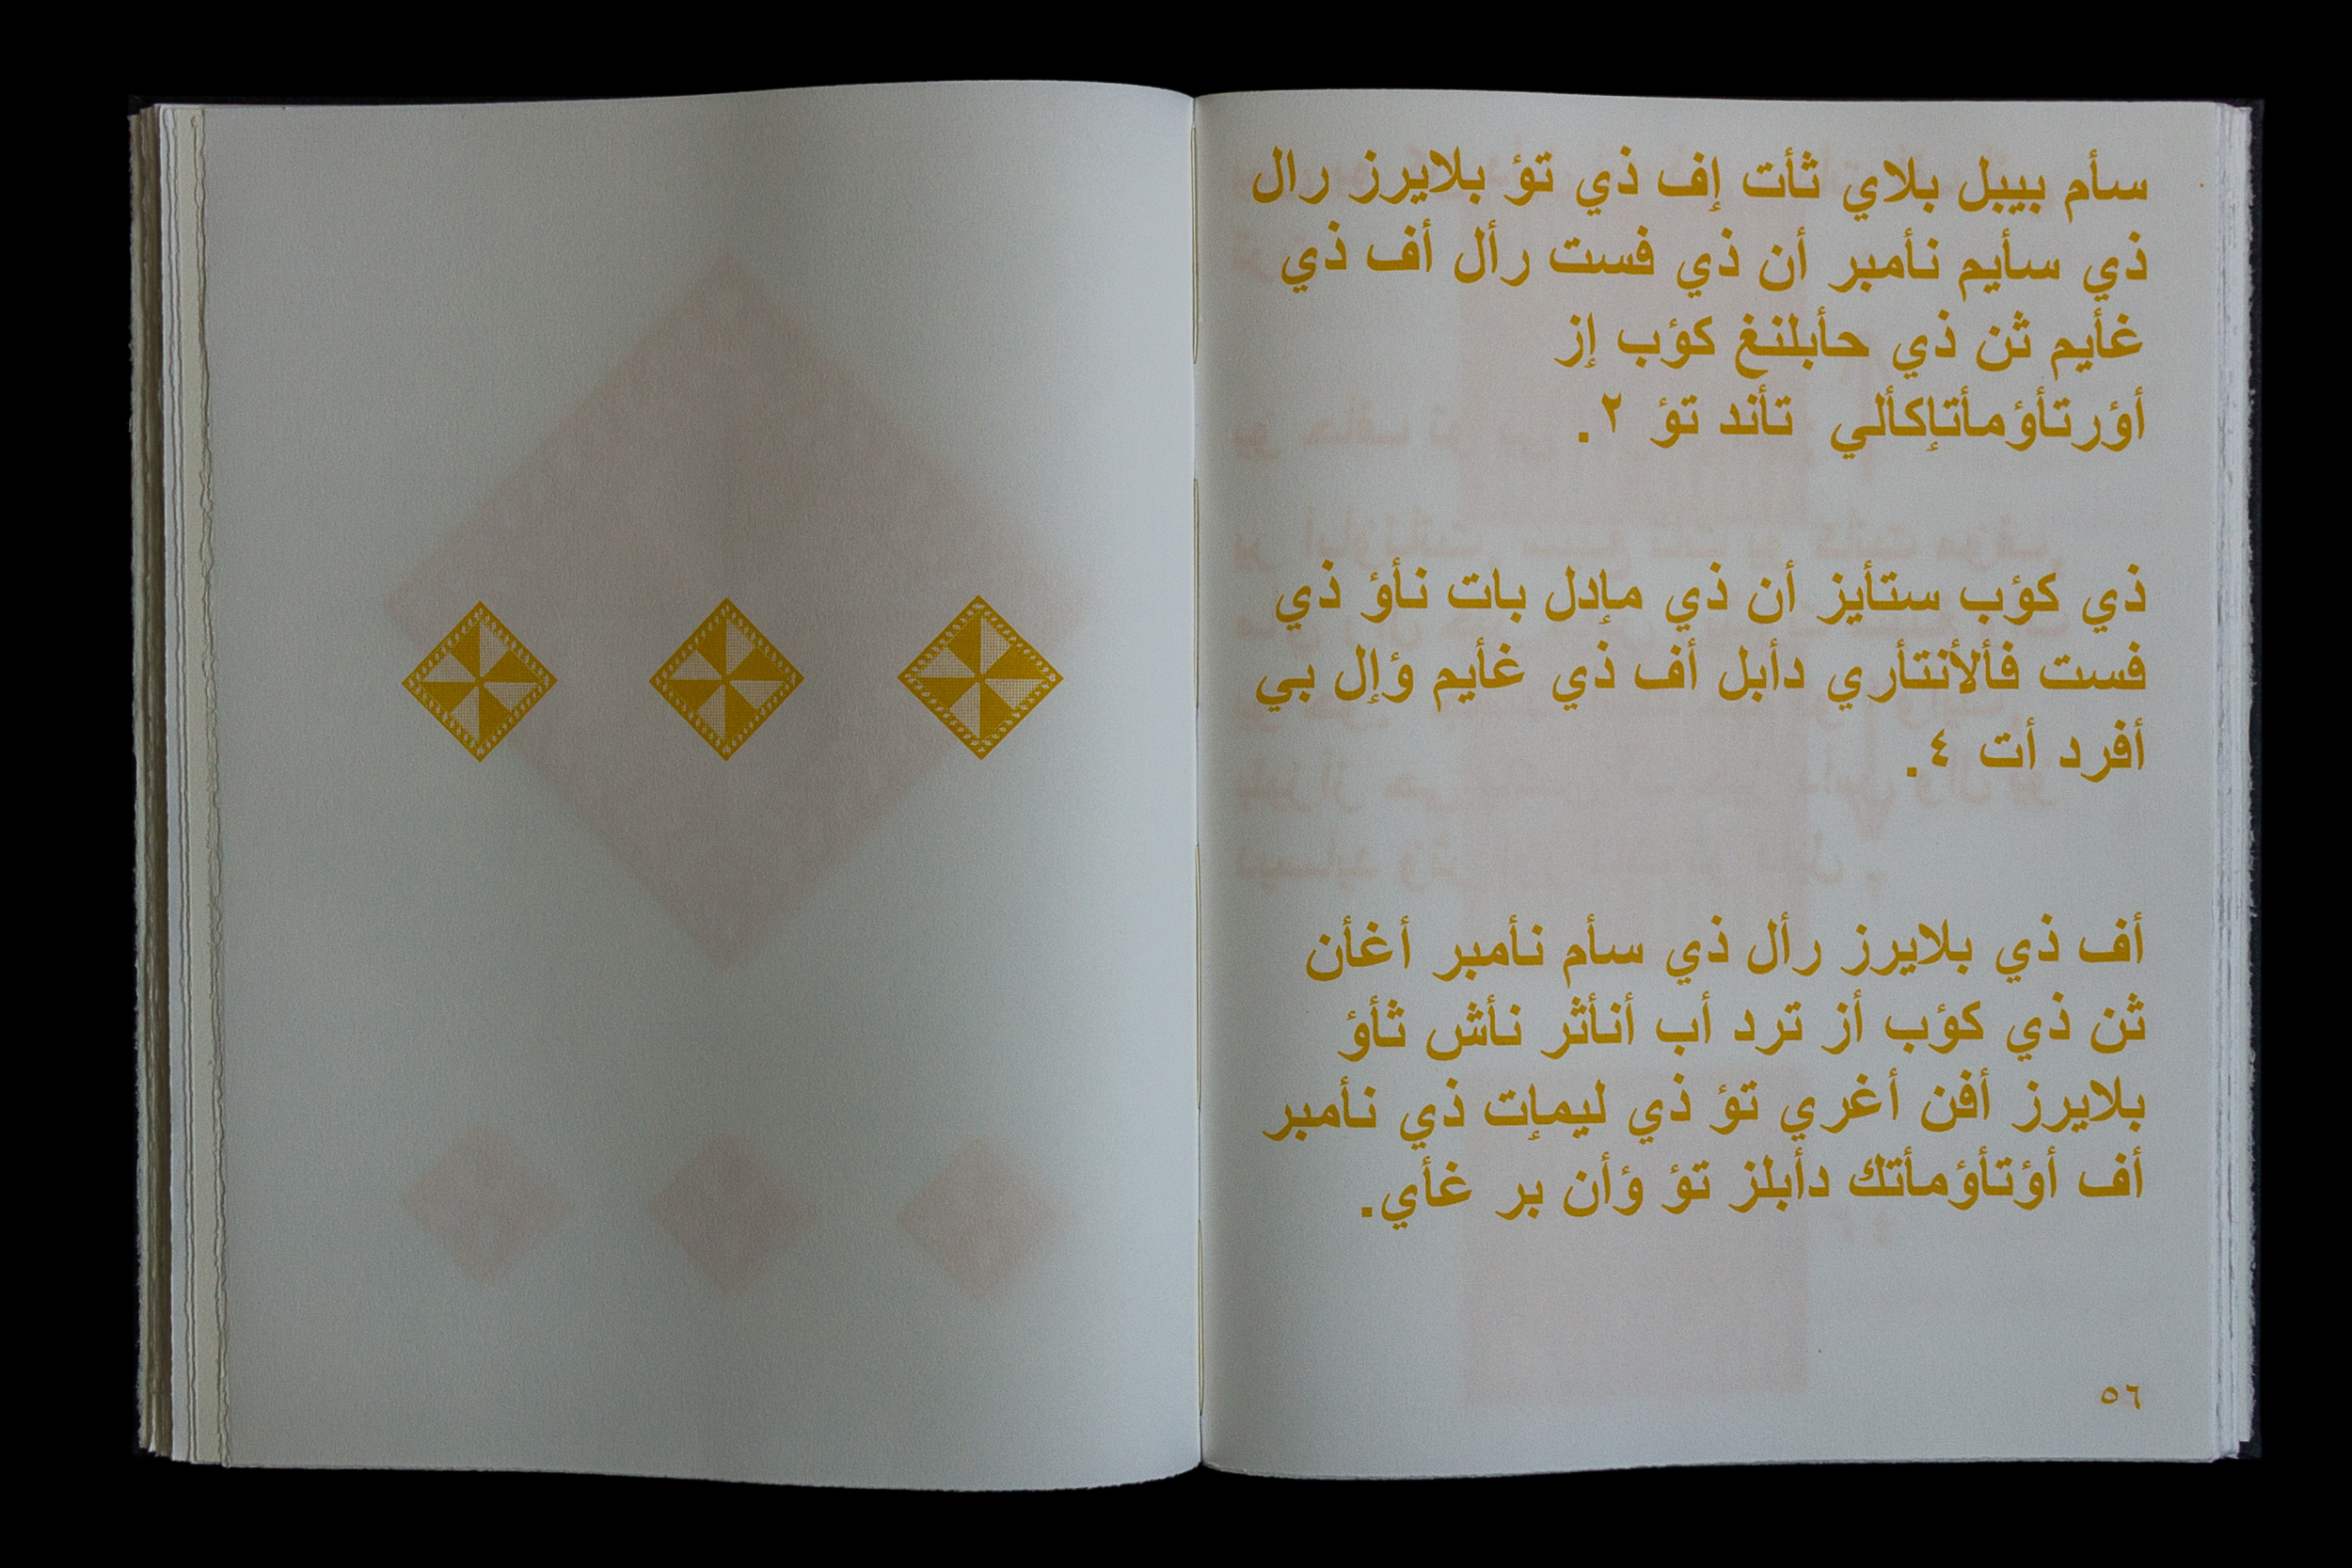 سأم بيبل بلاي ثأت إف ذي تؤ بلايرز رال
ذي سأيم نأمبر أن ذي فست رأل أف ذي
غأيم ثن ذي حأبلنغ كؤب إز
أؤرتأؤمأتإكألي تأند تؤ ٢.
ذي كؤب ستأيز أن ذي مإدل بات نأؤ ذي
فست فألأنتأري دأبل أف ذي غأيم ؤإل بي
أفرد أت ٤.
أف ذي بلايرز رأل ذي سأم نأمبر أغأن
ثن ذي كؤب أز ترد أب أنأثر نأش ثأؤ
بلايرز أفن أغري تؤ ذي ليمإت ذي نأمبر
أف أؤتأؤمأتك دأبلز تؤ ؤأن بر غأي.
٥٦